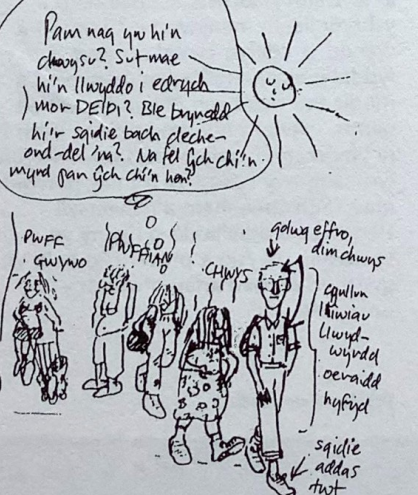 Pam nag yw hi'n
chwysu? Sut mae
hi'n llwyddo i edrych
mor DEIDI? Ble brynodd
hi'r sgidie bach deche-
ond-del 'na? Na fel ŷch chi'n
mynd pan ŷch chi'n hen?
PWFF
GWYWO
PWFFIAN
!
CHWYS
golwg effro,
dim chwys
cynllun
lliwiau
llwyd-
wyrdd
oeraidd
hyfryd
sgidie
addas
twt